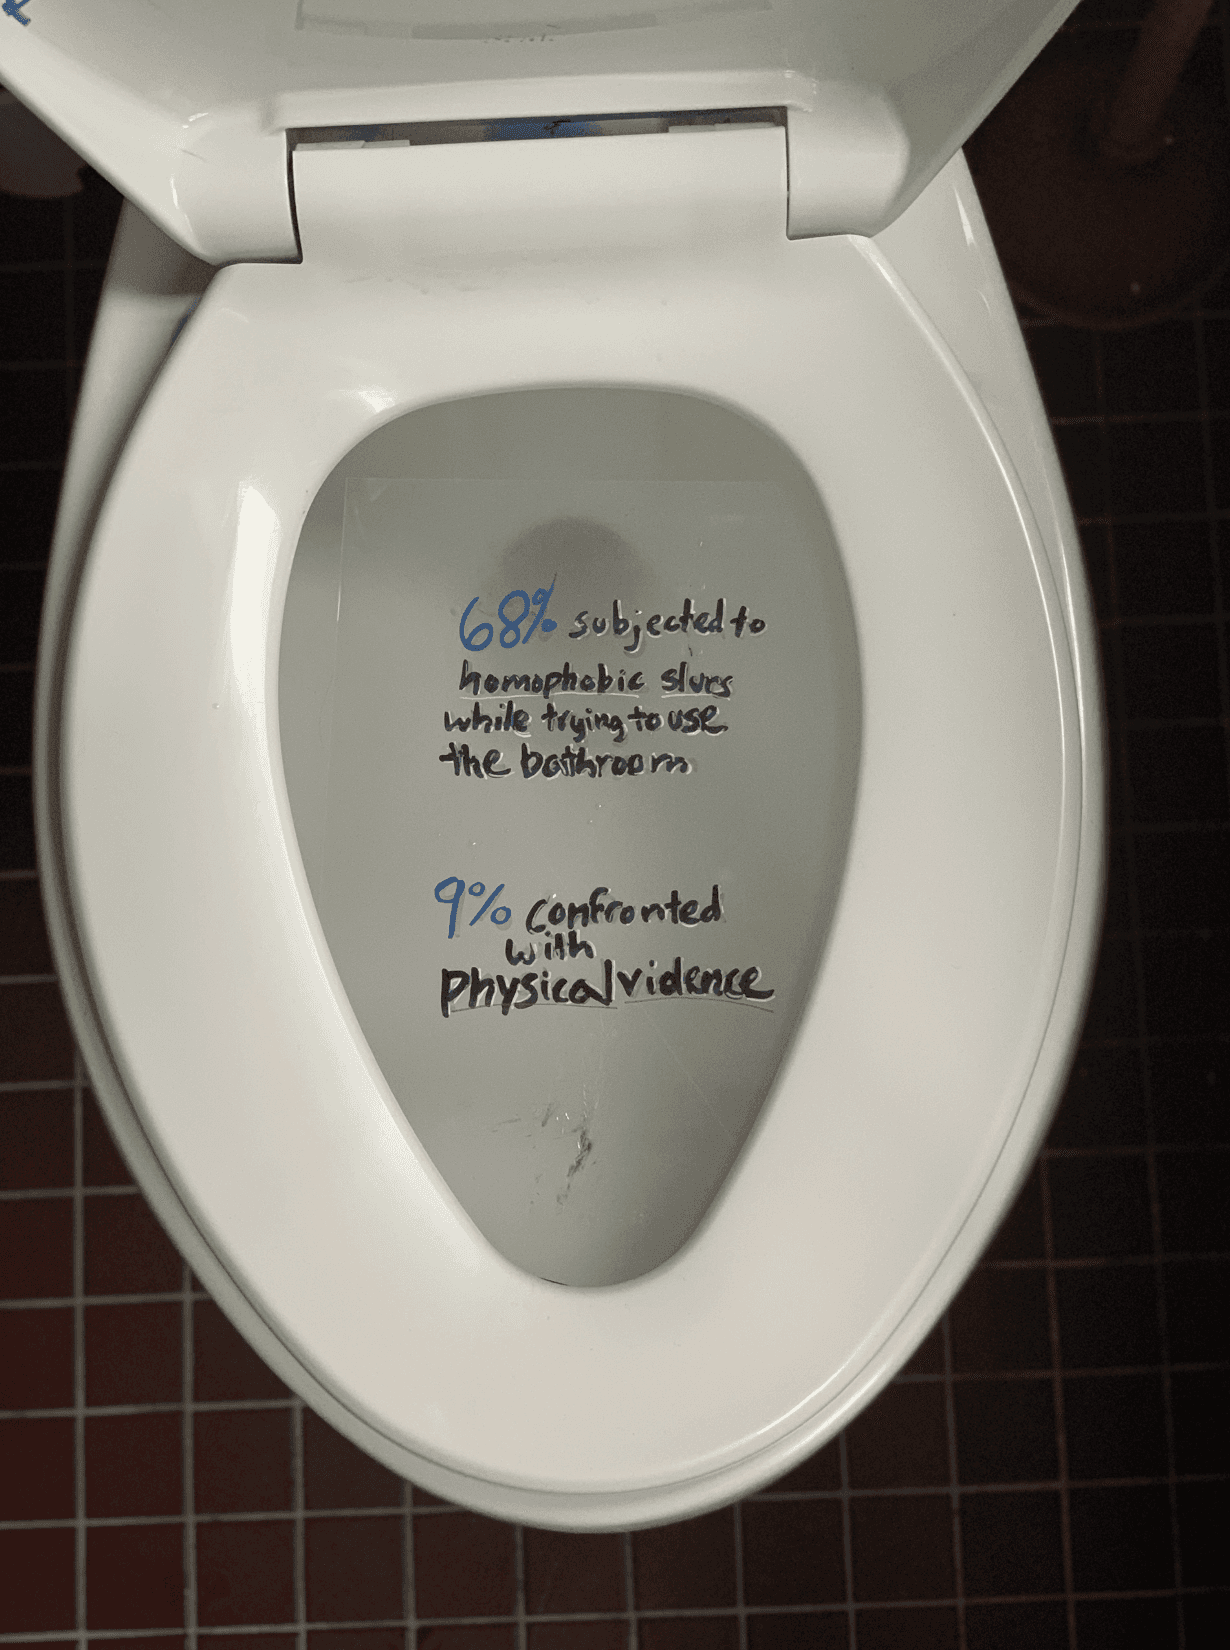 68% subjected to
homophobic slurs
while trying to use
the bathroom
9% confronted
with
physical vidence